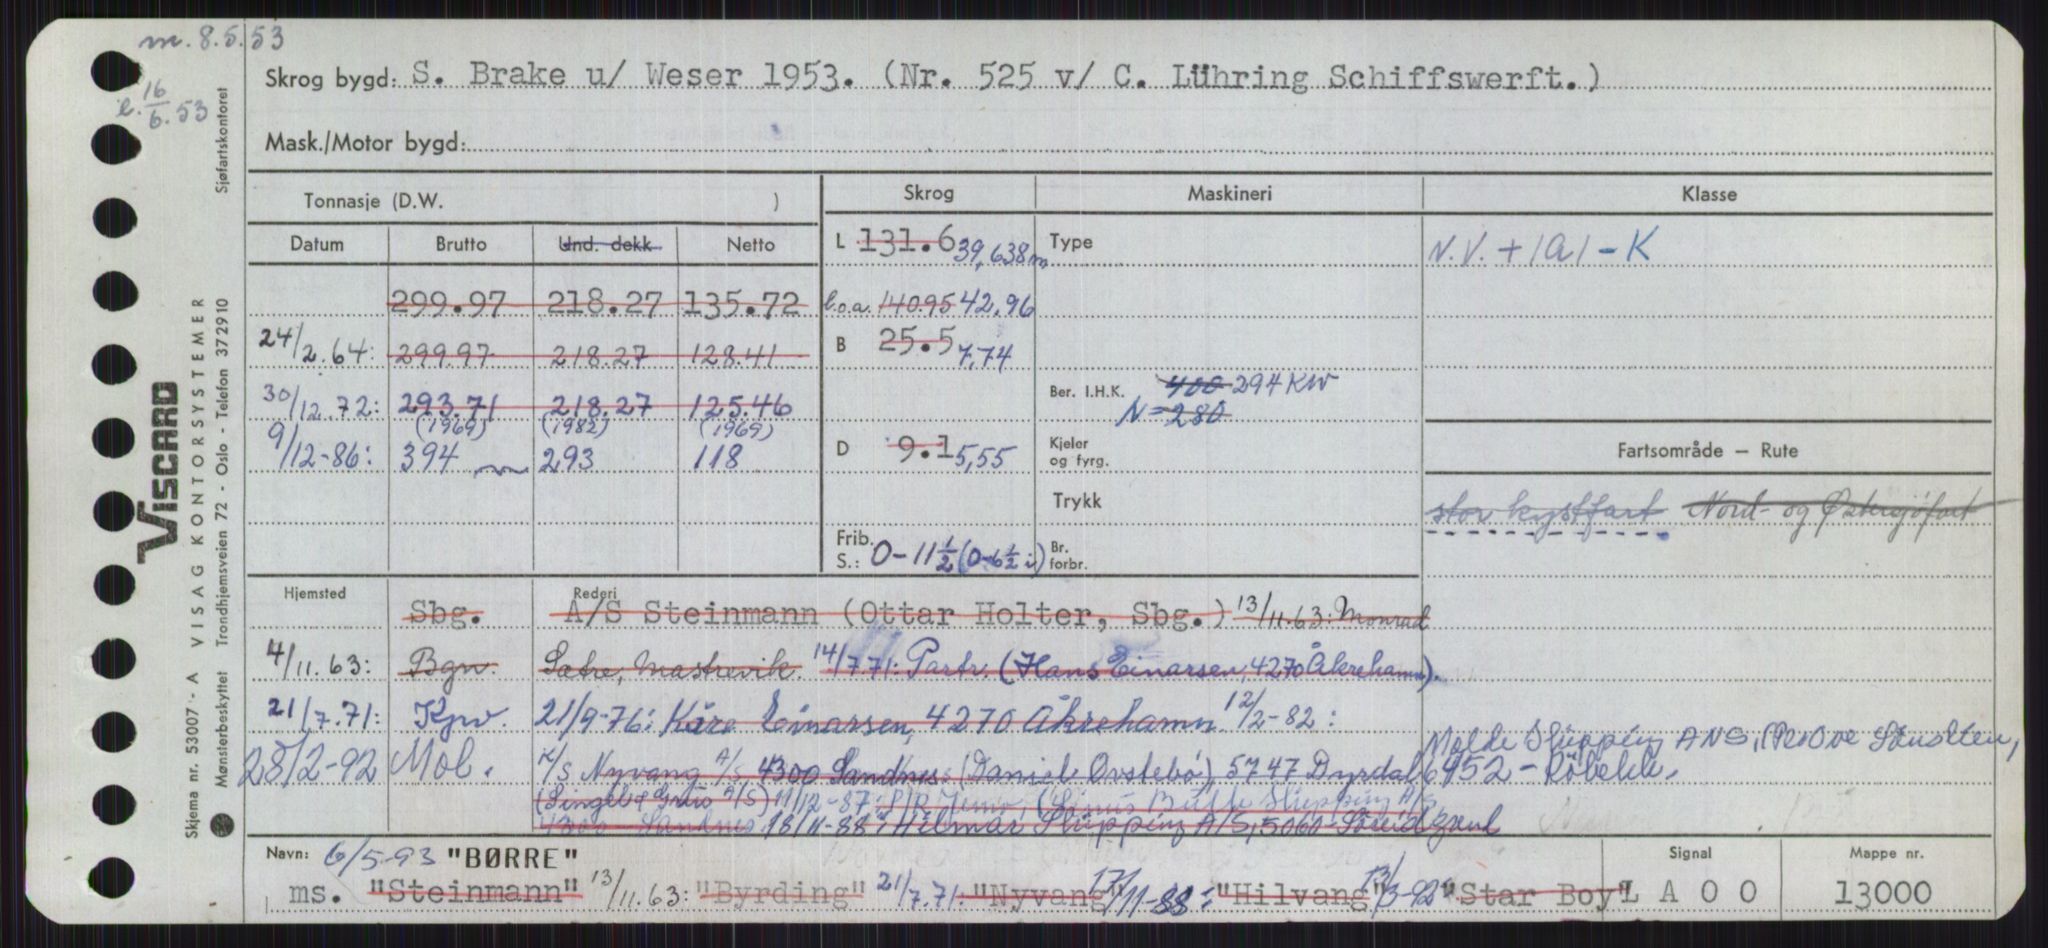 m. 8.5.53
l. 16/6.53
Skrog bygd: S. Brake u/ Weser 1953. (Nr. 525 v/ C. Lühring Schiffswerft.)
Mask./Motor bygd:
Tonnasje (D.W. )
Skrog
Maskineri
Klasse
Datum Brutto Und. dekk Netto
L 131.6 39,638m
Type
N.V. + 1A1 - K
299.97 218.27 135.72
l.o.a. 140.95 42,96
24/2.64: 299.97 218.27 128.41
B 25.5 7,74
30/12.72: 293.71 218.27 125.46
Ber. I.H.K. 400 294 KW
N = 280
(1969) (1982) (1969)
9/12-86: 394 293 118
D 9.1 5,55
Kjeler og fyrg.
Fartsområde — Rute
Trykk
stor kystfart Nord- og Østersjöfart
Frib. S.: 0-11½ (0-6½ i)
Br. forbr.
Hjemsted Rederi
Sbg. A/S Steinmann (Ottar Holter, Sbg.) 13/11.63: Monrad
4/11.63: Bgn. Sætre, Mastrevik. 14/7.71: Partr. (Hans Einarsen, 4270 Åkrehamn).
21/7.71: Kprv. 21/9-76: Kåre Einarsen, 4270 Åkrehamn. 12/2-82:
28/2-92 Mol. K/S Nyvang A/S 4300 Sandnes (Daniel Ovstebö), 5747 Dyrdal
Molde Shipping ANS, (Per Ove
6452 - Röbekk.
A/S) 11/12-87: P/R (Linus Buffe Shipping A/S
4300 Sandnes 18/11-88: Hilmar Shipping A/S, 5060 Söreidgrend
Navn: 6/5-93 "BØRRE"
ms. "Steinmann" 13/11.63: "Byrding" 21/7.71: "Nyvang" 17/11-88: "Hilvang" 13/3-92: "Star Boy"
Signal
L A O O
Mappe nr.
13000
VISCARD
Skjema nr. 53007 - A VISAG KONTORSYSTEMER
Mønsterbeskyttet Trondhjemsveien 72 - Oslo - Telefon 372910 Sjøfartskontoret